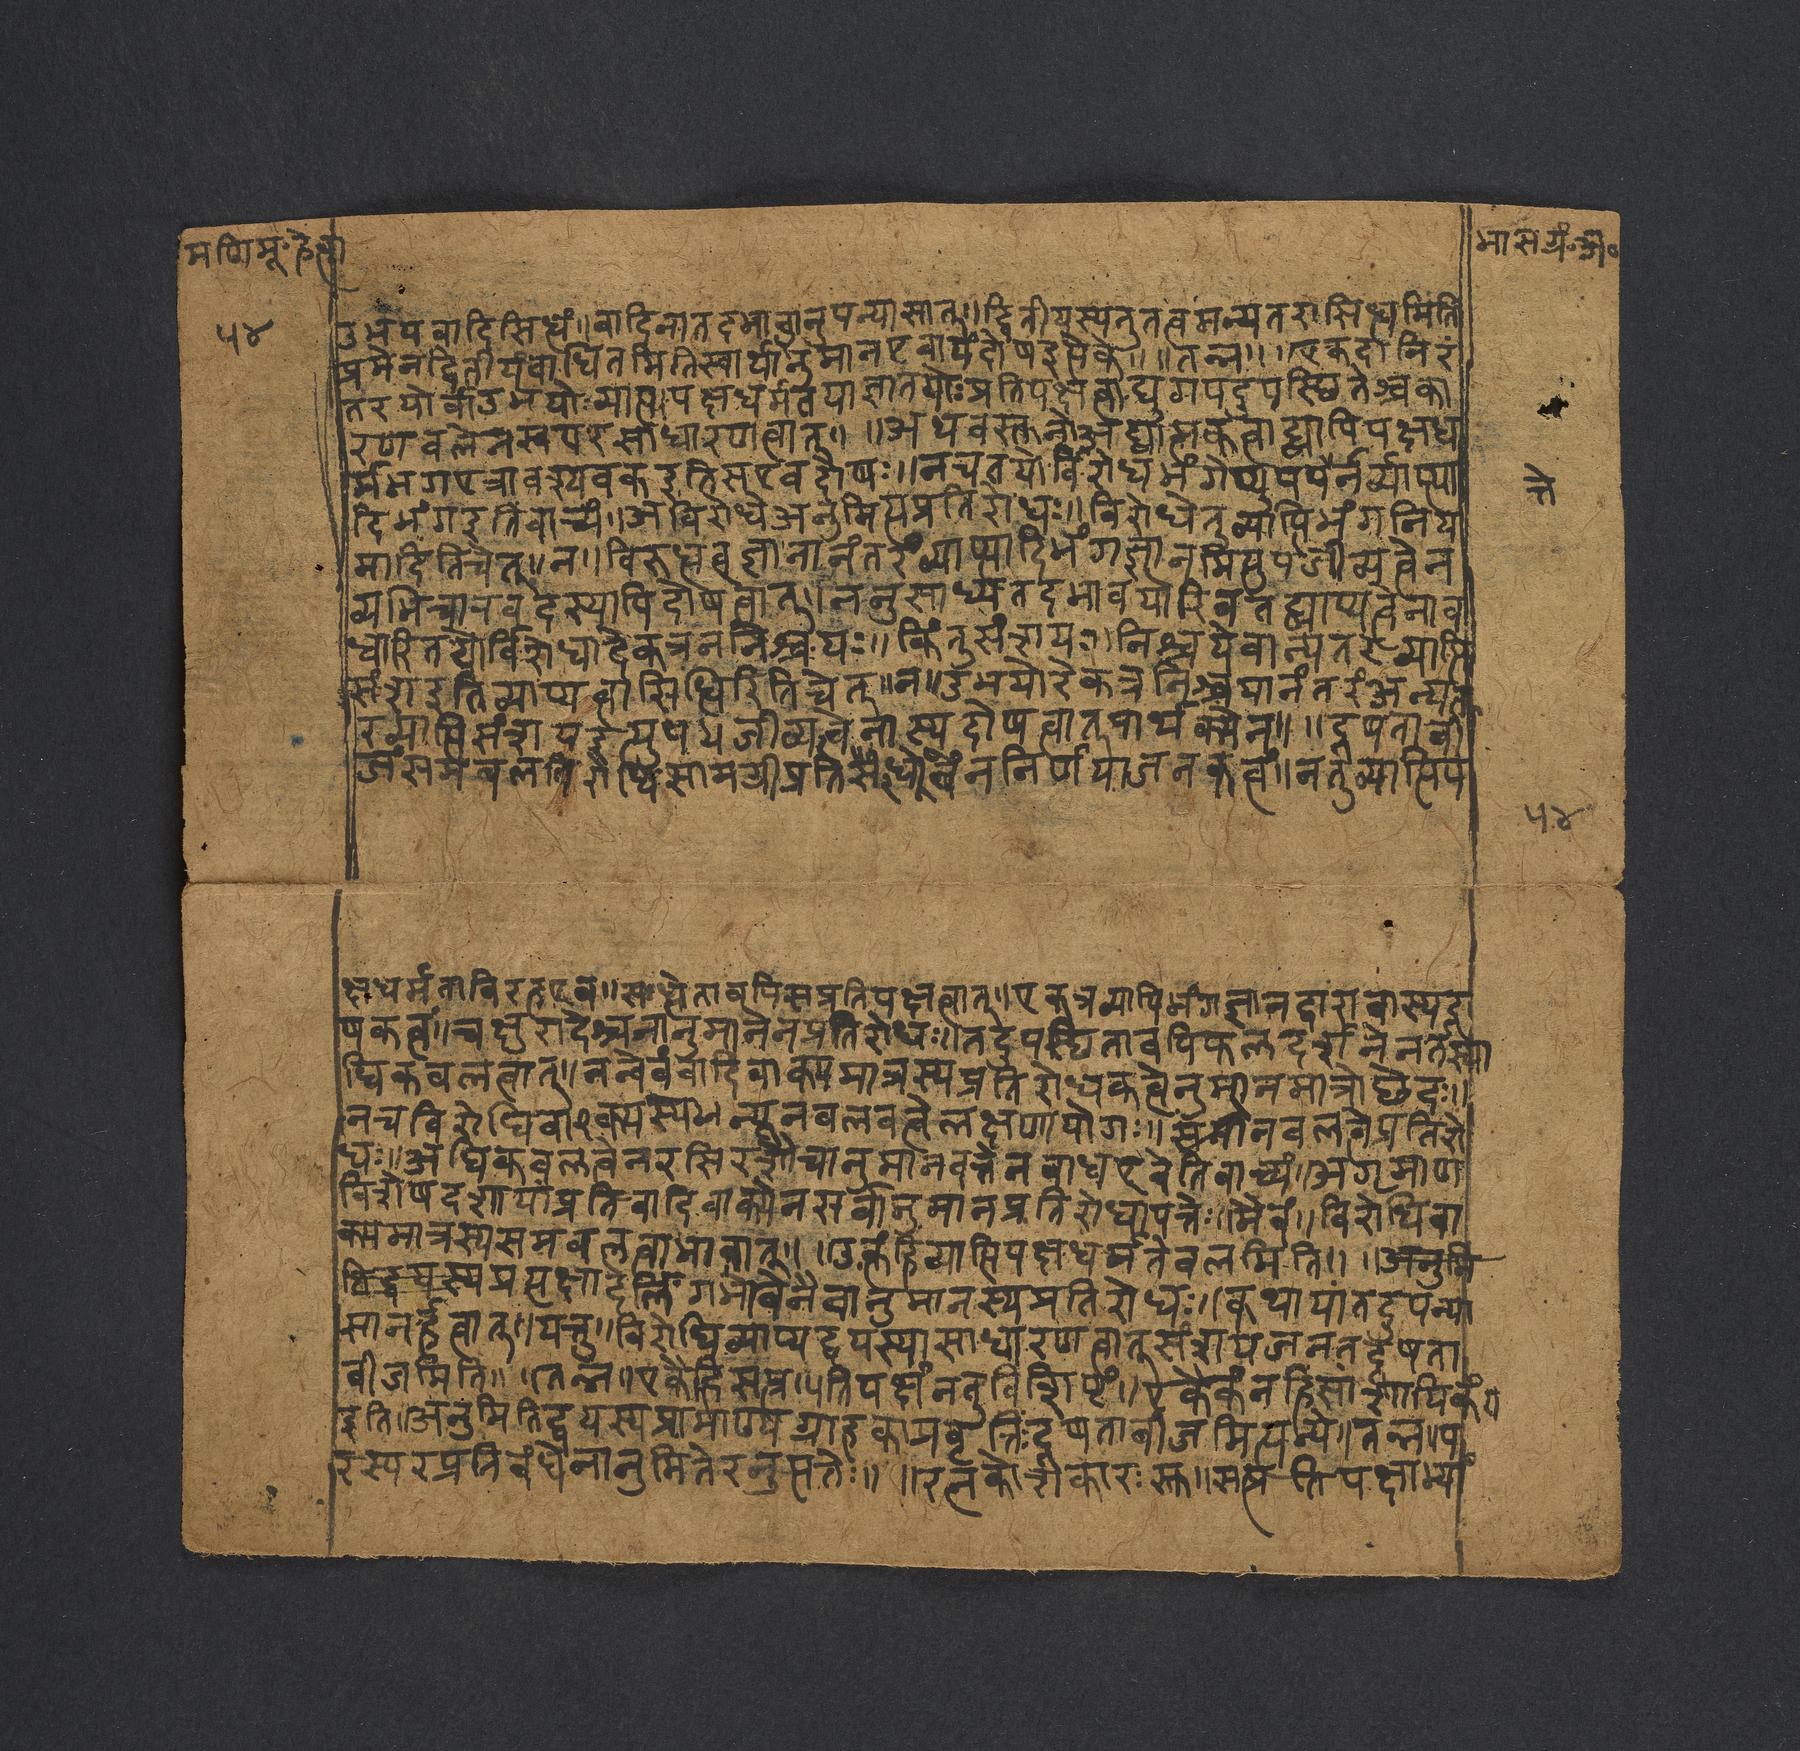 मणिमू॰हेत्वा
भासग्रं॰अ॰
५४
उभयवादिसिध्धं॥वादिनातदभावानुपन्यासात्॥द्वितीयस्यतुतत्वमन्यतरासिध्धमिति
प्रथमेनद्वितीयंबाधितमितिस्वार्थानुमानएवायंदोषइत्येके॥॥तन्न॥एकदानिरं
तरयोर्वाउभयोःव्याप्तिपक्षधर्मतयाज्ञातयोःप्रतिपक्षत्वाद्युगपदुपस्थितेश्चका
रणबलेनस्वपरसाधारणत्वात्॥॥अथवस्तुनोअद्व्यात्मकत्वाद्व्याप्तिपक्षध
र्मभगएत्रावश्यवकइतिसएवदोषः॥नचतयोर्विरोधभंगेप्युपपपेर्नव्याप्त्या
दिभंगइतिवाच्यं॥अविरोधेअनुमित्यप्रतिरोधः॥विरोधेतुव्याप्तिभंगनिय
मादितिचेत्॥न॥विरुध्धत्वज्ञानानंतरंव्याप्त्यादिभंगज्ञानमित्युपजीव्यत्वेन
व्यभिचारवदस्यापिदोषत्वात्॥ननुसाध्यतदभावयोरिवतद्व्याप्यत्वेनाव
धारितयोर्विरोधादेकत्रननिश्चयः॥किंतुसंशय॰निश्चयेवान्यतरव्याप्ति
संशइतिव्याप्यत्वासिध्धिरितिचेत्॥न॥उभयोरेकत्रनिश्चयानंतरंअन्यत
रव्याप्तिसंशयइत्युपजीव्यत्वेनास्यदोषत्वात्पार्थक्येन॥॥दुषताबी
जंसमबलविरोधिसामग्रीप्रतिसंध्धत्वेननिर्णयाजनकत्वं॥नतुव्याप्तिप
त्ते
५४
क्षधर्मताविरहएव॥सध्धेतावपिसत्प्रतिपक्षत्वात्॥एकत्रव्याप्तिभंगज्ञानद्वारावास्यदू
षकत्वं॥चक्षुरादेश्चनानुमानेनप्रतिरोधः॥तदुपस्थितावपिफलदर्शनेनतस्या
धिकबलत्वात्॥नन्वेवंवादिवाक्यमात्रस्यप्रतिरोधकत्वेनुमानमात्रोछेदः॥
नचविरोधिवाक्यस्यन्यूनबलवत्वेलक्षणायोगः॥समानबलत्वेप्रतिरो
धः॥अधिकबलत्वेनरसिरशौचानुमानवत्तेनबाधएवेतिवाच्यं॥अगृमाण
विशेषदशायांप्रतिवादिवाक्येनसर्वानुमानप्रतिरोधापत्तेः॥मैवं॥विरोधिवा
क्यमात्रस्यसमबलत्वाभावात्॥॥उक्तंहिव्याप्तिपक्षधर्मतेबलमिति॥॥अनुमि
विद्वयस्यप्रत्यक्षादेर्लिंगभावेनैवानुमानस्यप्रतिरोधः॥कथायांतदुपन्या
सानर्हत्वात्॥यत्तु॥विरोधिव्याप्यद्वयस्यासाधारणत्वात्संशयजनतदूषता
बीजमिति॥॥तन्न॥एकैकंहिसत्प्रतिपक्षंनतुविशिष्टं॥एकैकंनहिसांशयिकं
इति॥अनुमितिद्वयस्यप्रामाण्यग्राहकाप्रवृत्तिःदूषताबीजमित्यन्ये॥तन्न॥प
रस्परप्रतिबंधेनानुमितेरनुत्पत्तेः॥॥रत्नकोशकारःस्तु॥सत्प्रतिपक्षाभ्यां